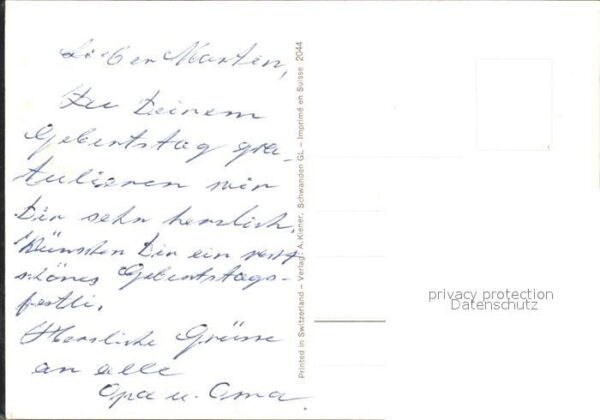 Lieber Martin,
Zu Deinem
Geburtstag gra-
tulieren wir
Dir sehr herzlich,
Wünschen Dir ein recht
schönes Geburtstags-
festli.
Herzliche Grüsse
an alle
Opa u. Oma
Printed in Switzerland – Verlag: A. Kiener, Schwanden GL – Imprimé en Suisse 2044
privacy protection
Datenschutz